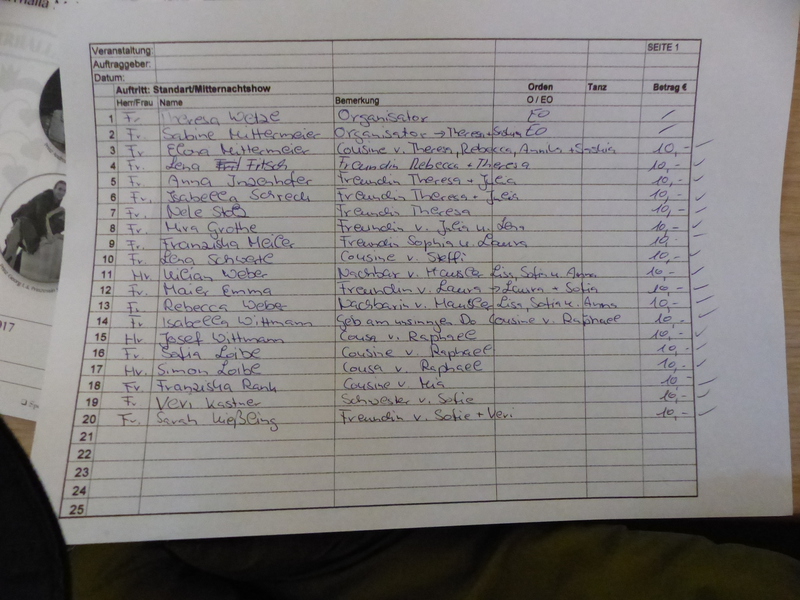 Veranstaltung: SEITE 1
Auftraggeber:
Datum:
Auftritt: Standart/Mitternachtshow Orden Tanz Betrag €
Herr/Frau Name Bemerkung O / EO
1 Fr. Theresa Organisator EO /
2 Fr. Sabine Mittermeier Organisator → Theresa + EO /
3 Fr. Mittermeier Cousine v. Theresa, Rebecca, + 10,- ✓
4 Fr. Lena Fritsch Freundin Rebecca + Theresa 10,- ✓
5 Fr. Anna Freundin Theresa + Julia 10,- ✓
6 Fr. Isabella Schreck Freundin Theresa + Julia 10,- ✓
7 Fr. Nele Freundin Theresa 10,- ✓
8 Fr. Mira Grothe Freundin v. Julia u. Lena 10,- ✓
9 Fr. Franziska Meiler Freundin Sophia u. Laura 10,- ✓
10 Fr. Lena Cousine v. Steffi 10,- ✓
11 Hr. Kilian Weber Nachbar v. Lisa, Sofia u. Anna 10,- ✓
12 Fr. Maier Emma Freundin v. Laura → Laura + Sofia 10,- ✓
13 Fr. Rebecca Weber Nachbarin v. Lisa, Sofia u. Anna 10,- ✓
14 Fr. Isabella Wittmann Geb am unsinnigen Do Cousine v. Raphael 10,- ✓
15 Hr. Josef Wittmann Cousa v. Raphael 10,- ✓
16 Fr. Sofia Loibe Cousine v. Raphael 10,- ✓
17 Hr. Simon Loibe Cousa v. Raphael 10,- ✓
18 Fr. Franziska Rank Cousine v. Mia 10,- ✓
19 Fr. Veri Kastner Schwester v. Sofie 10,- ✓
20 Fr. Sarah Kießling Freundin v. Sofie + Veri 10,- ✓
21
22
23
24
25